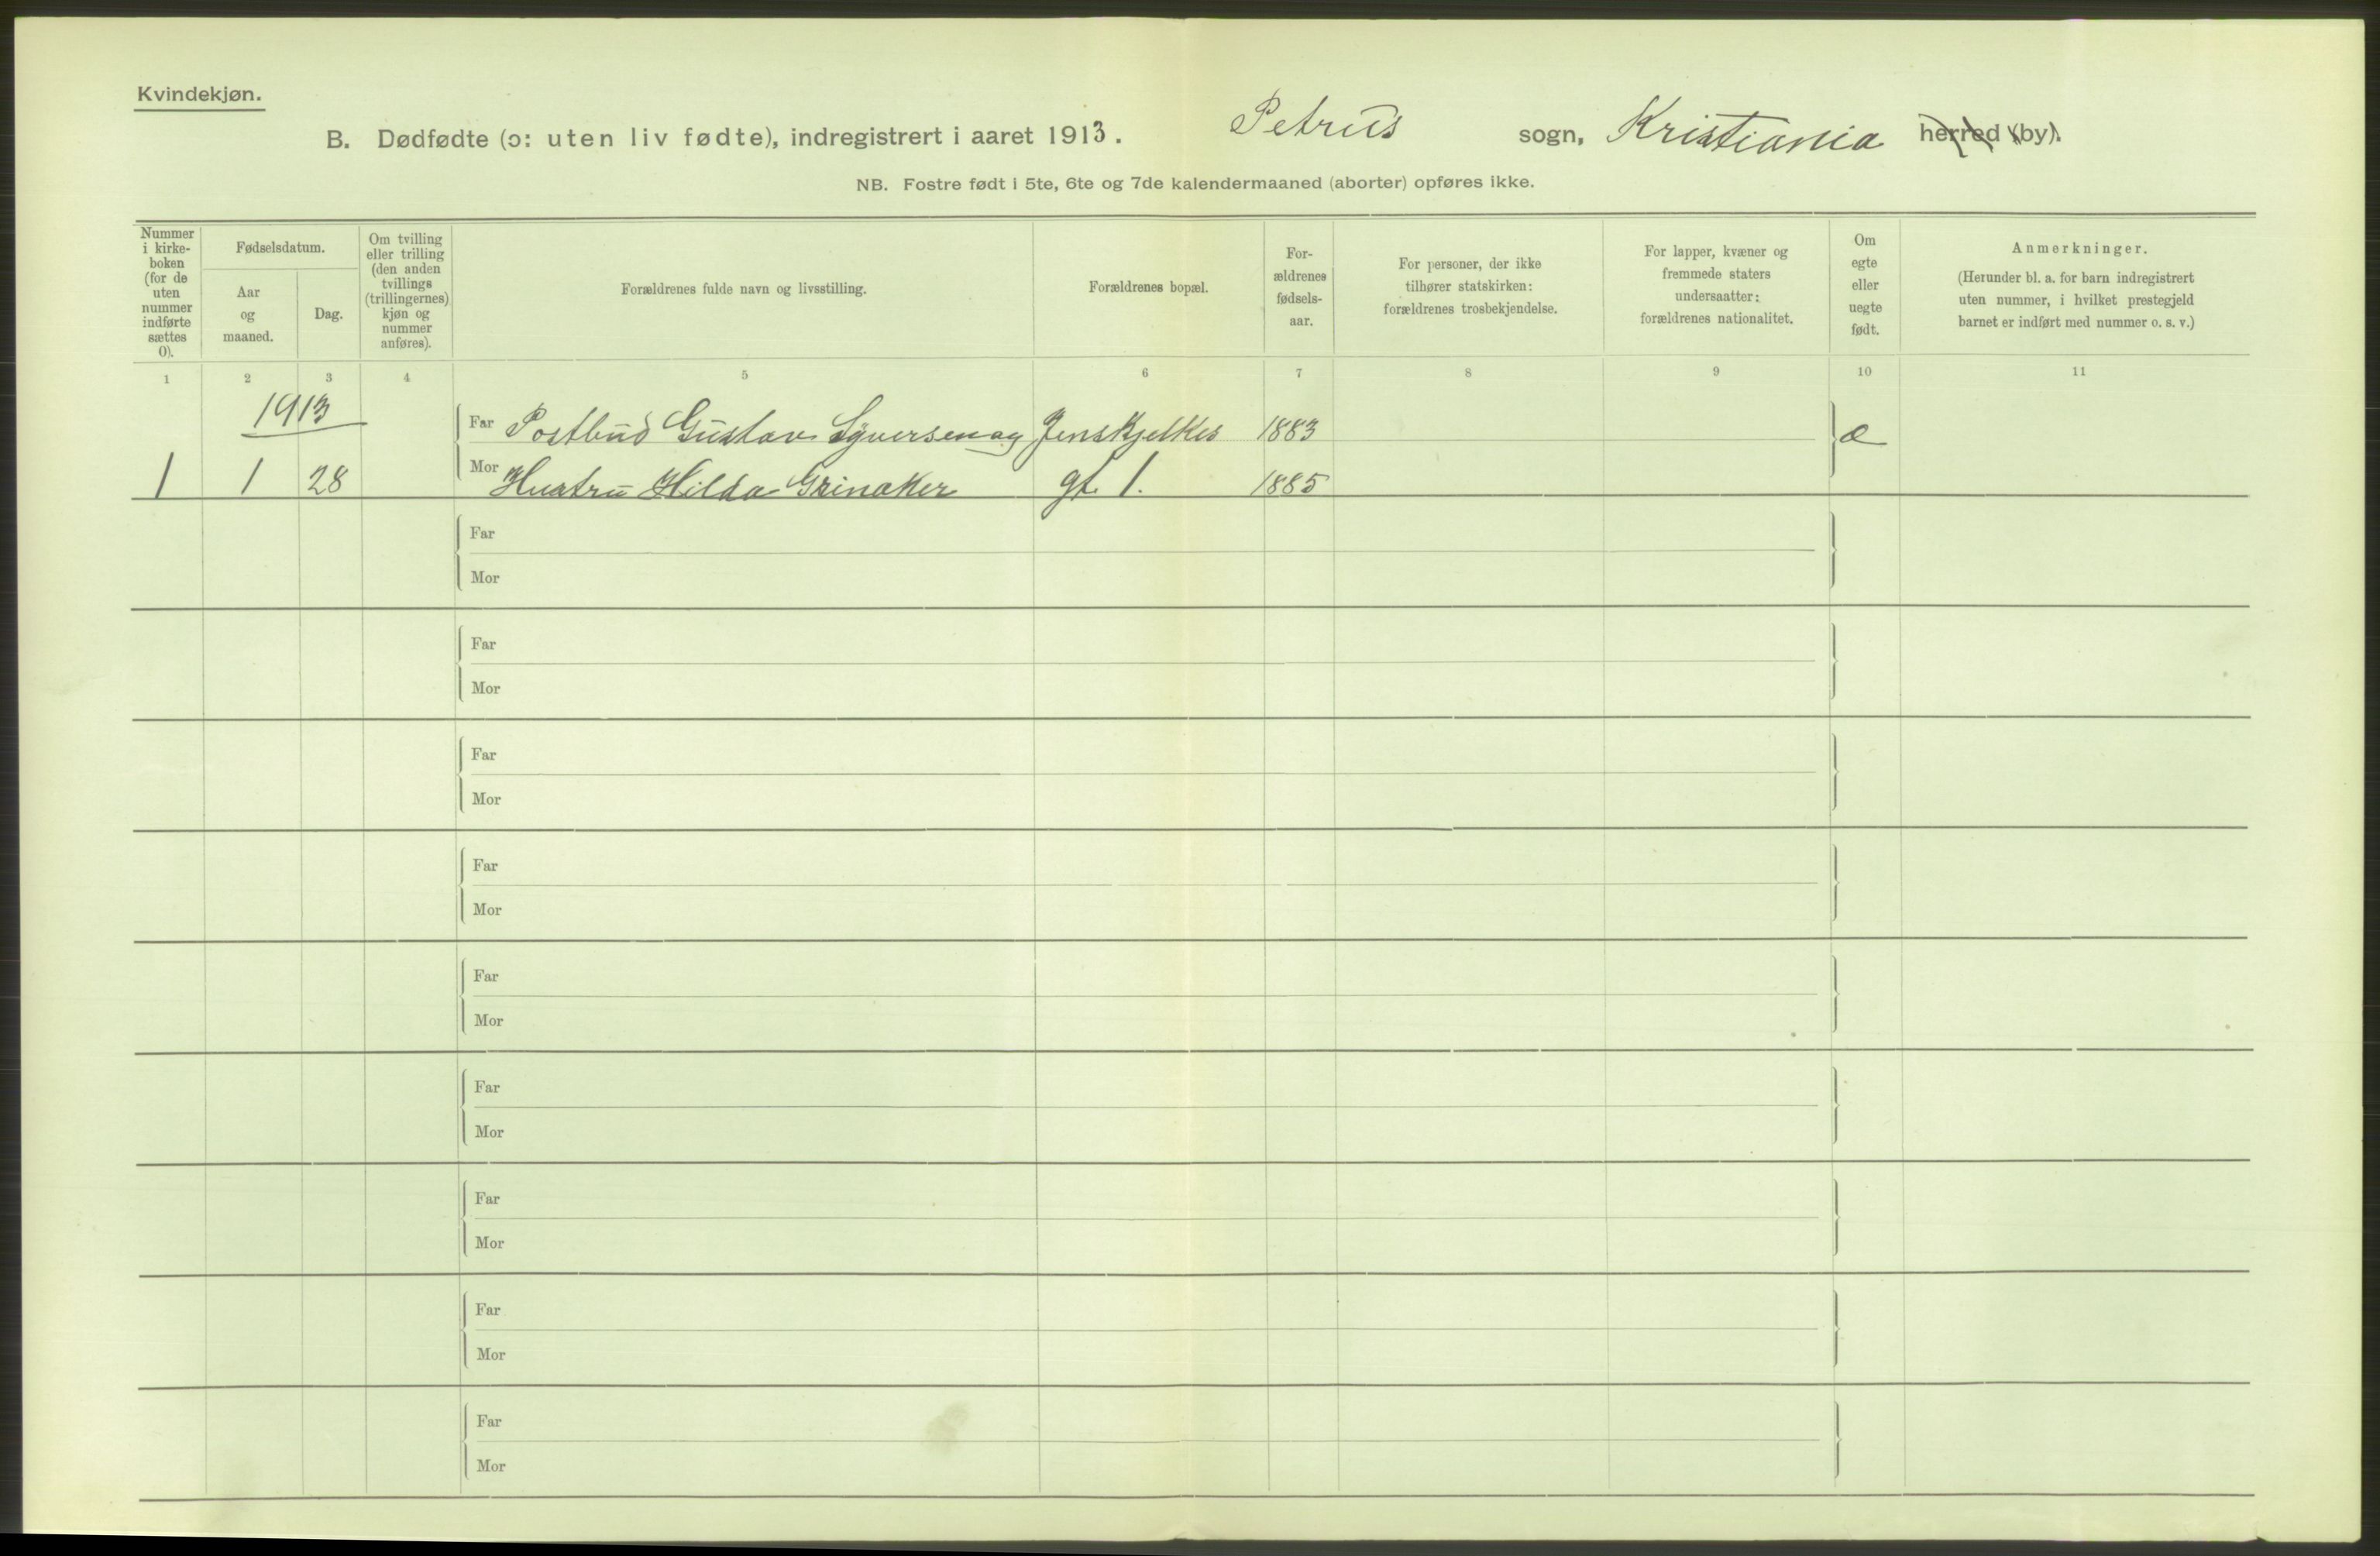 Kvindekjøn.
B. Dødfødte (ɔ: uten liv fødte), indregistrert i aaret 1913. Petrus sogn, Kristiania herred (by).
NB. Fostre født i 5te, 6te og 7de kalendermaaned (aborter) opføres ikke.
Nummer i kirke-boken (for de uten nummer indførte sættes 0).
Fødselsdatum.
Aar og maaned.
Dag.
Om tvilling eller trilling (den anden tvillings (trillingernes) kjøn og nummer anføres).
Forældrenes fulde navn og livsstilling.
Forældrenes bopæl.
For-ældrenes fødsels-aar.
For personer, der ikke tilhører statskirken: forældrenes trosbekjendelse.
For lapper, kvæner og fremmede staters undersaatter: forældrenes nationalitet.
Om egte eller uegte født.
Anmerkninger.
(Herunder bl. a. for barn indregistrert uten nummer, i hvilket prestegjeld barnet er indført med nummer o. s. v.)
1 2 3 4 5 6 7 8 9 10 11
1913
Far Postbud Gustav Syversen og Jens Bjelkes 1883 æ
1 1 28 Mor Hustru Hilda Grinaker gt. 1. 1885
Far
Mor
Far
Mor
Far
Mor
Far
Mor
Far
Mor
Far
Mor
Far
Mor
Far
Mor
Far
Mor